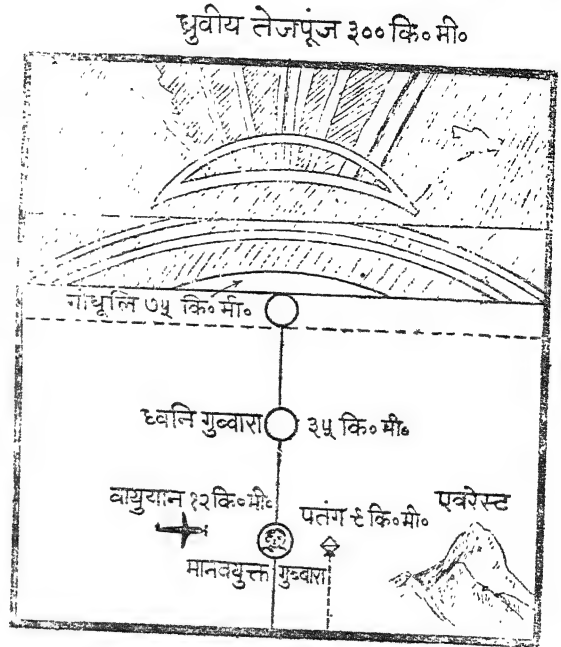 ध्रुवीय तेजपूंज ३०० कि० मी०
गोधूलि ७५ कि० मी०
ध्वनि गुब्बारा ३५ कि० मी०
वायुयान १२ कि० मी०
पतंग ९ कि० मी०
एवरेस्ट
मानवयुक्त गुब्बारा